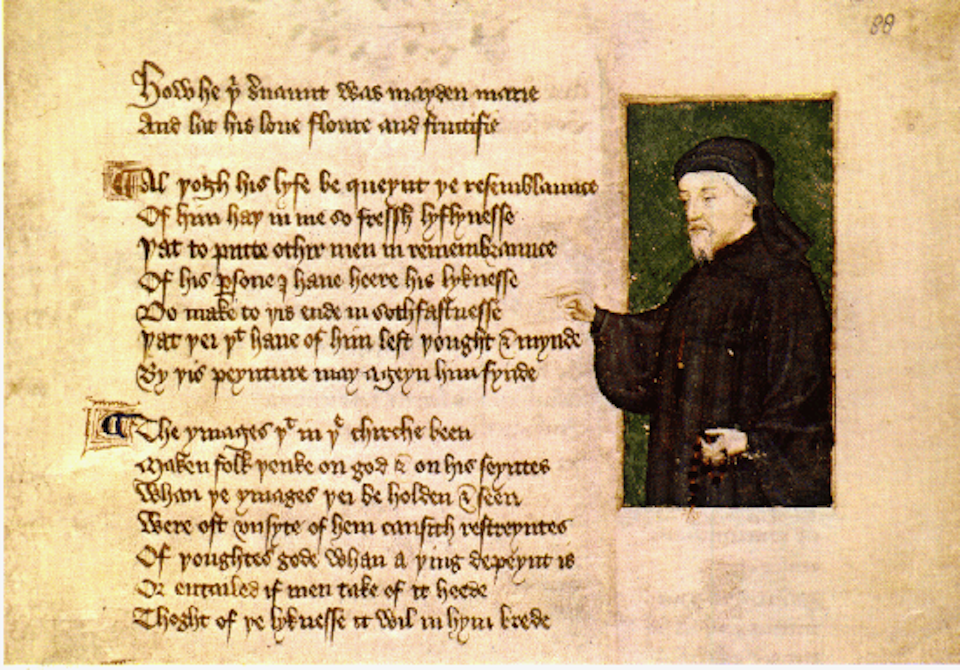 88
How he þⁱ ẜuaunt was mayden marie
And lat his loue floure and fructifie
Al þogh his lyfe be queynt þe resemblaunce
Of him haþ in me so fressh lyflynesse
Þat to putte othir men in remembraunce
Of his ꝑsone I haue heere his lyknesse
Do make to þis ende in sothfastnesse
Þat þei þᵗ haue of him left þought & mynde
By þis peynture may ageyn him fynde
The ymages þᵗ in þᵉ chirche been
Maken folk þenke on god & on his seyntes
Whan þe ymages þei be holden & seen
Were oft vnsyte of hem causith restreyntes
Of þoughtes gode whan a þing depeynt is
Or entailed if men take of it heede
Thoght of þe lyknesse it wil in hym brede